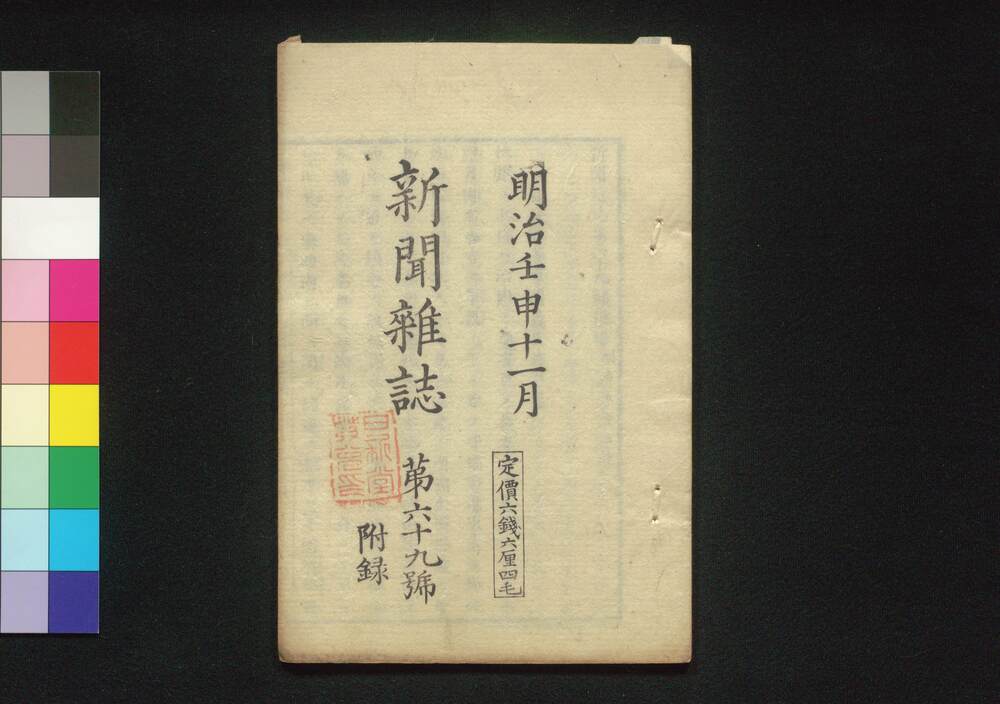 明治壬申十一月
定價六錢六厘四毛
新聞雜誌
第六十九號
附録